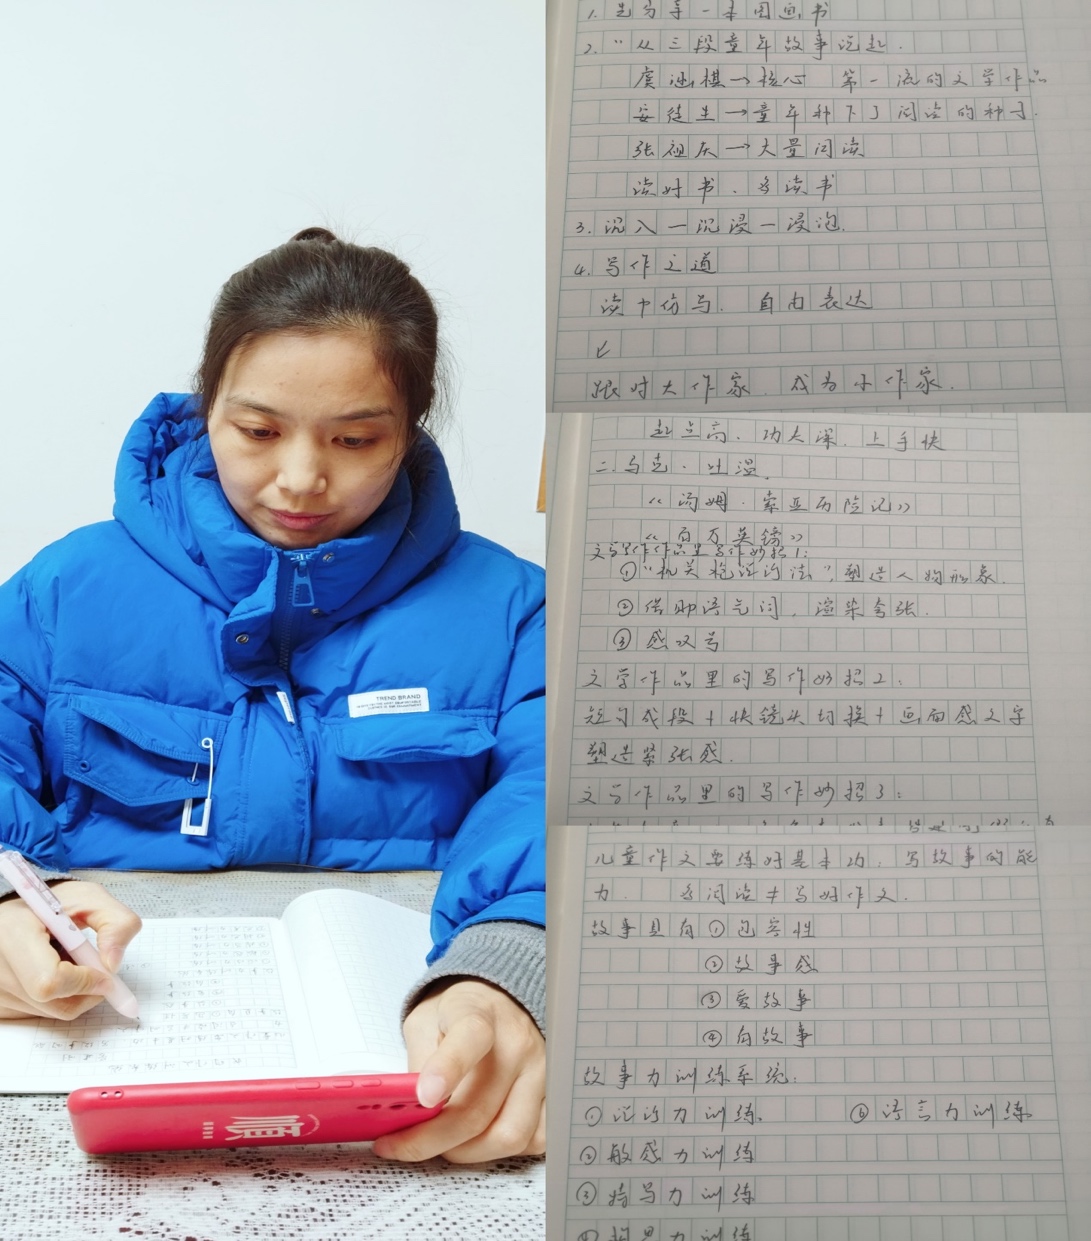 TREND BRAND
顺
1. 先写季一本图画书
2. "从三段童年故事说起.
虞涵棋→核心 第一流的文学作品
安徒生→童年种下了阅读的种子.
张祖庆→大量阅读
读好书、多读书
3. 沉入—沉浸—浸泡.
4. 写作之道
读中仿写. 自由表达
跟对大作家. 成为小作家.
起点高. 功夫深. 上手快
二. 马克·吐温.
《汤姆·索亚历险记》
《百万英镑》
文学作品里写作妙招1:
①"机关枪说话法",塑造人物形象.
②借助语气词,渲染夸张.
③感叹号
文学作品里的写作妙招2:
短句成段+快镜头切换+画面感文字
塑造紧张感.
文学作品里的写作妙招3:
儿童作文要练好基本功:写故事的能
力. 多阅读≠写好作文.
故事具有①包容性
②故事感
③爱故事
④有故事
故事力训练系统:
①说话力训练. ⑥语言力训练
②敏感力训练
③描写力训练
力训练